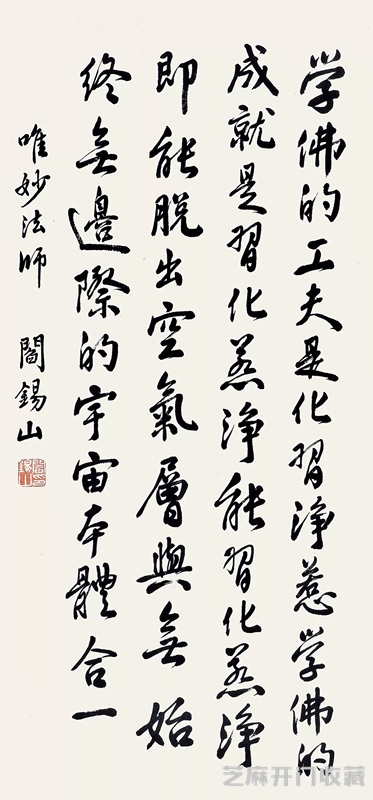 学佛的工夫是化習淨惹学佛的
成就是習化惹淨能習化惹淨
即能脫出空氣層與無始
終無邊際的宇宙本體合一
唯妙法師 閻錫山
芝麻开门收藏